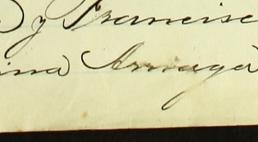 y Francisc
ina Arruga